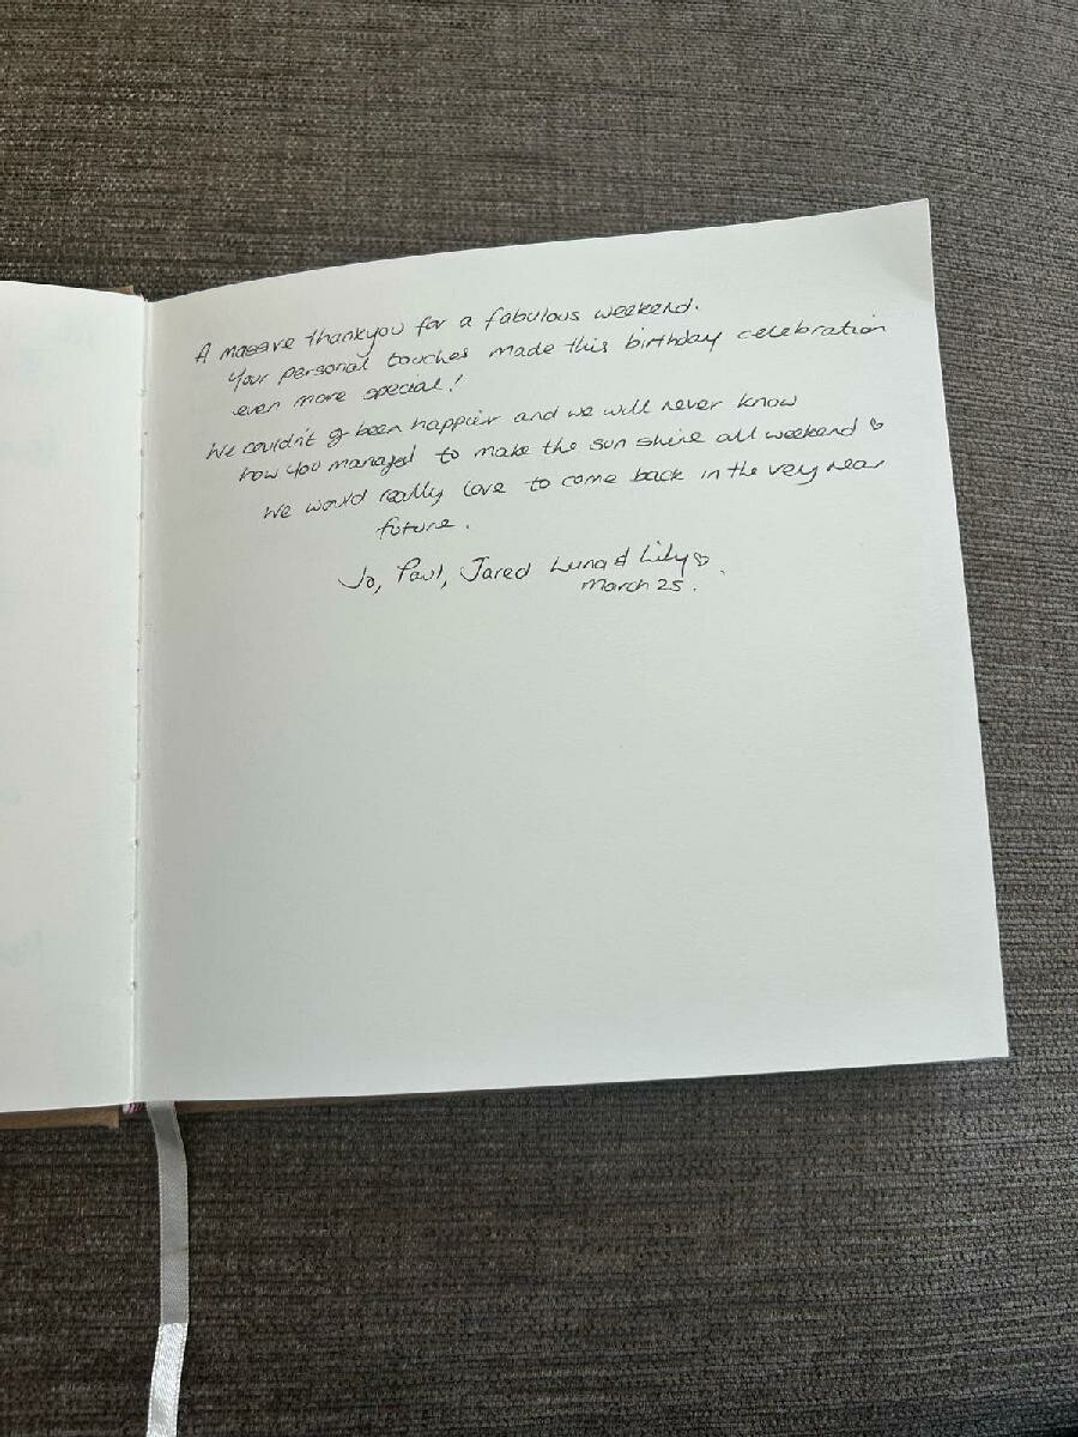 A massive thankyou for a fabulous weekend.
Your personal touches made this birthday celebration
even more special!
We couldn't of been happier and we will never know
how you managed to make the sun shine all weekend ♡
We would really love to come back in the very near
future.
Jo, Paul, Jared Luna & Lily ♡.
March 25.